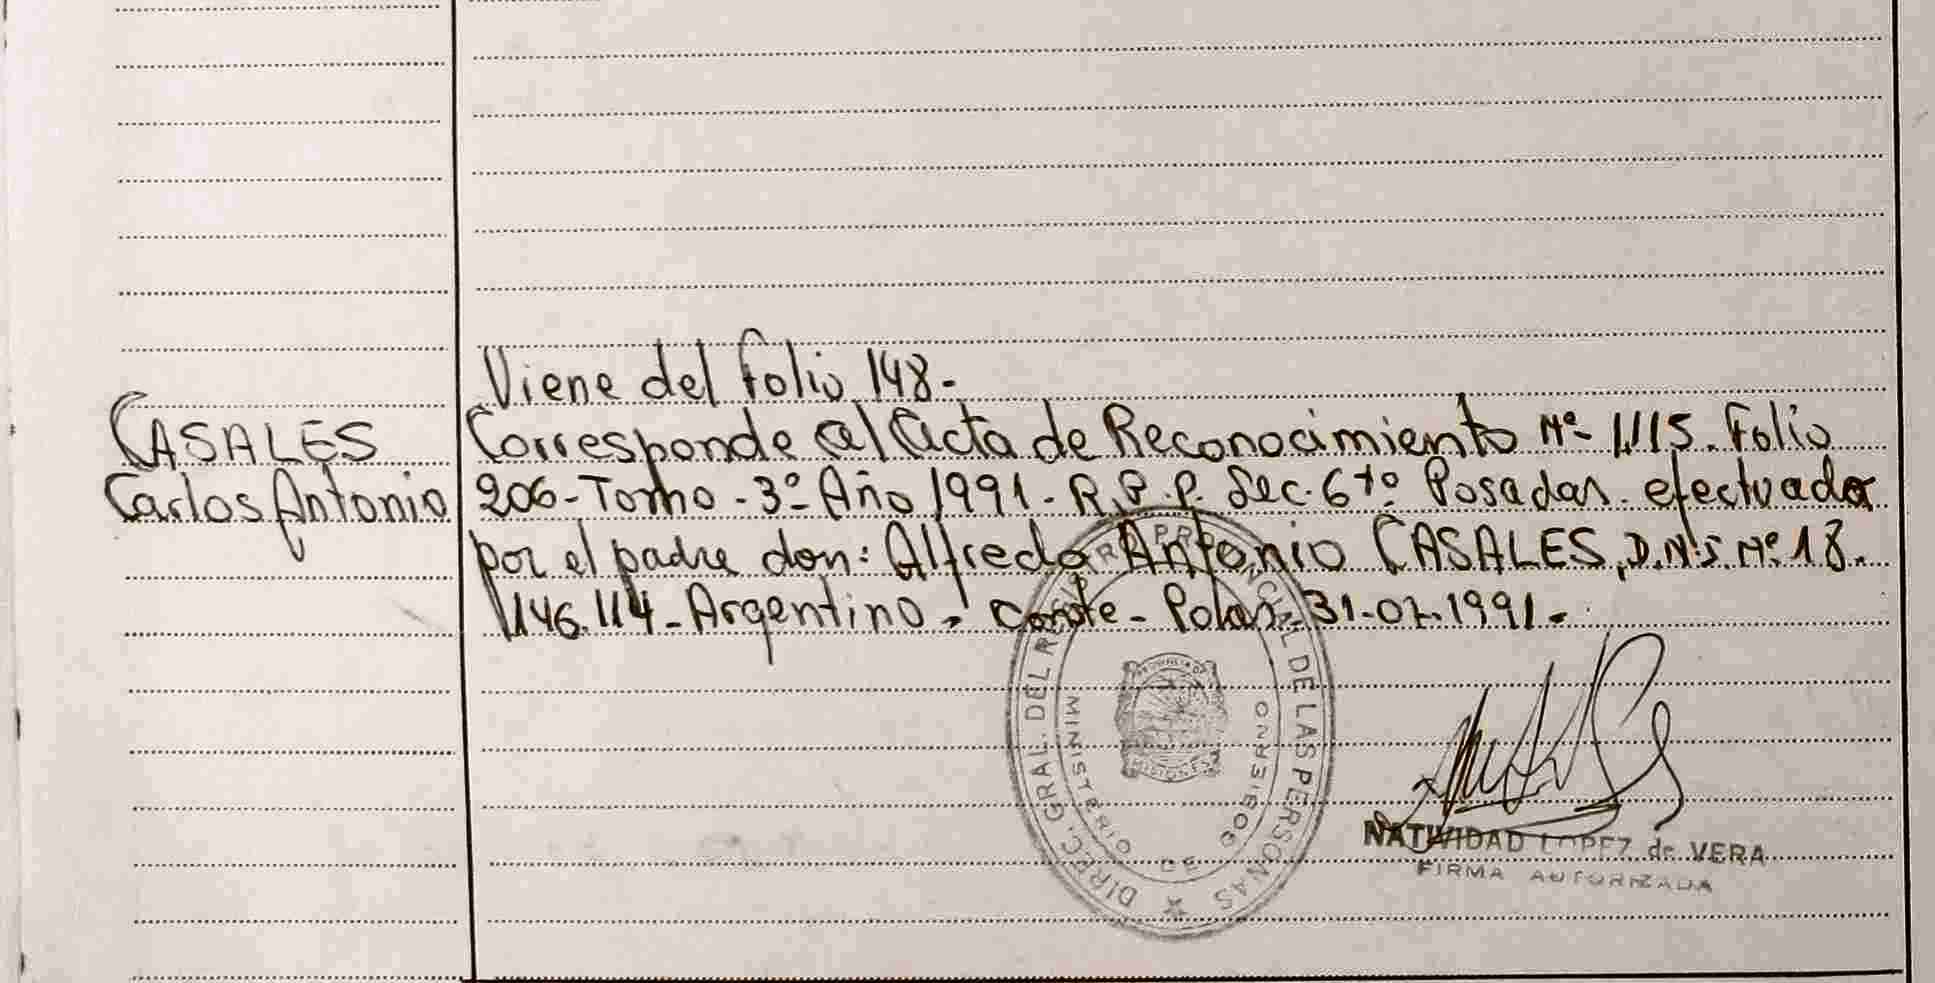 Viene del folio 148-
CASALES
Carlos Antonio
Corresponde al Acta de Reconocimiento Nº- 1115. Folio
206-Tomo-3º-Año 1991-R.P.P. Sec. 6to Posadas. efectuada
por el padre don: Alfredo Antonio CASALES, D.N.I. Nº 18.
146.114-Argentino. Conste- Posadas 31-07-1991-.
DIREC. GRAL. DEL REGISTRO PROVINCIAL DE LAS PERSONAS
MINISTERIO DE GOBIERNO
PROVINCIA DE
MISIONES
NATIVIDAD LOPEZ de VERA
FIRMA AUTORIZADA